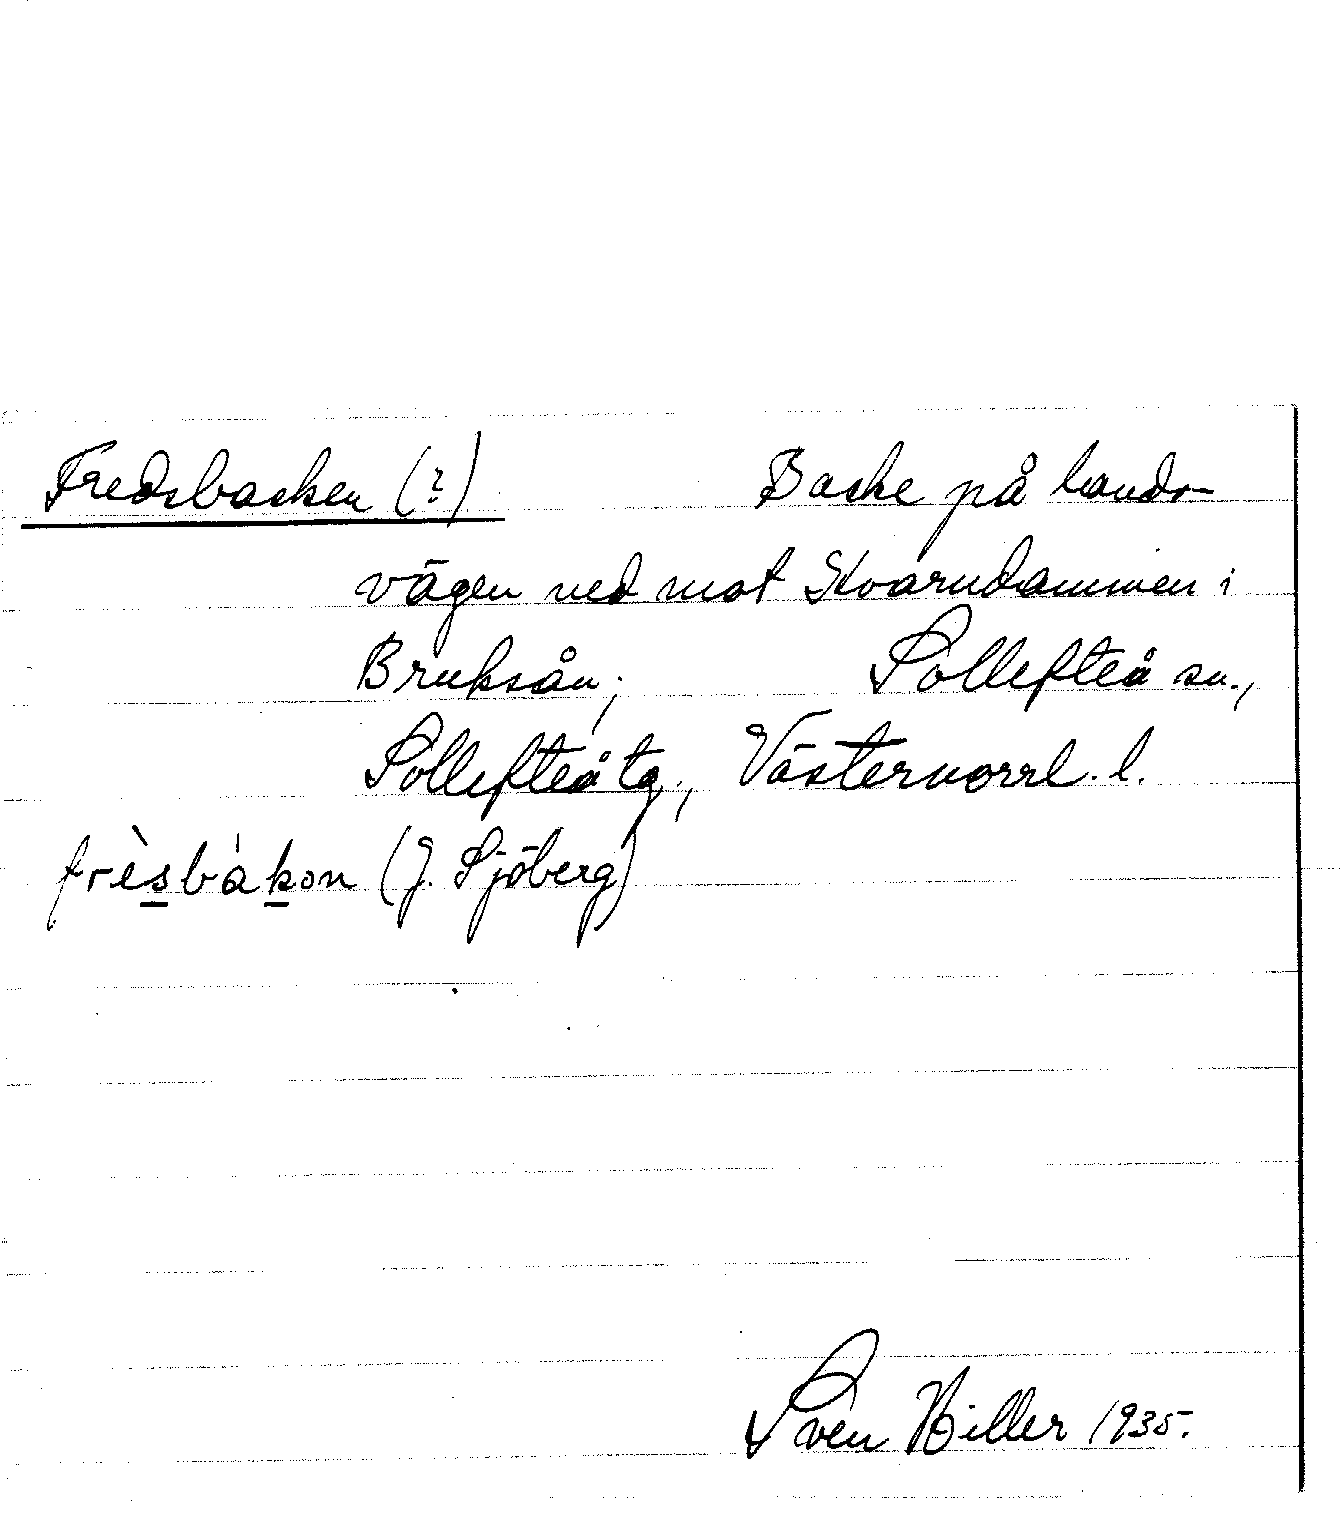 Fredsbacken (?) Backe på lands-
vägen ned mot Kvarndammen i
Bruksån; Sollefteå sn.,
Sollefteå tg., Västernorrl. l.
frèsbákon (J. Sjöberg)
Sven Hiller 1935.